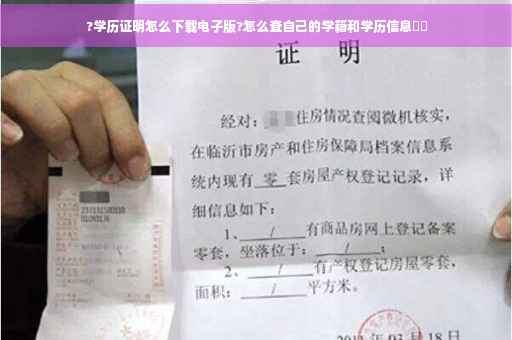 ?学历证明怎么下载电子版?怎么查自己的学籍和学历信息
证 明
经对：住房情况查阅微机核实，
在临沂市房产和住房保障局档案信息系
统内现有 零 套房屋产权登记记录，详
细信息如下：
1、 / 有商品房网上登记备案
零套，坐落位于： / ；
2、 / 有产权登记房屋零套，
面积： / 平方米。
03 月 18 日